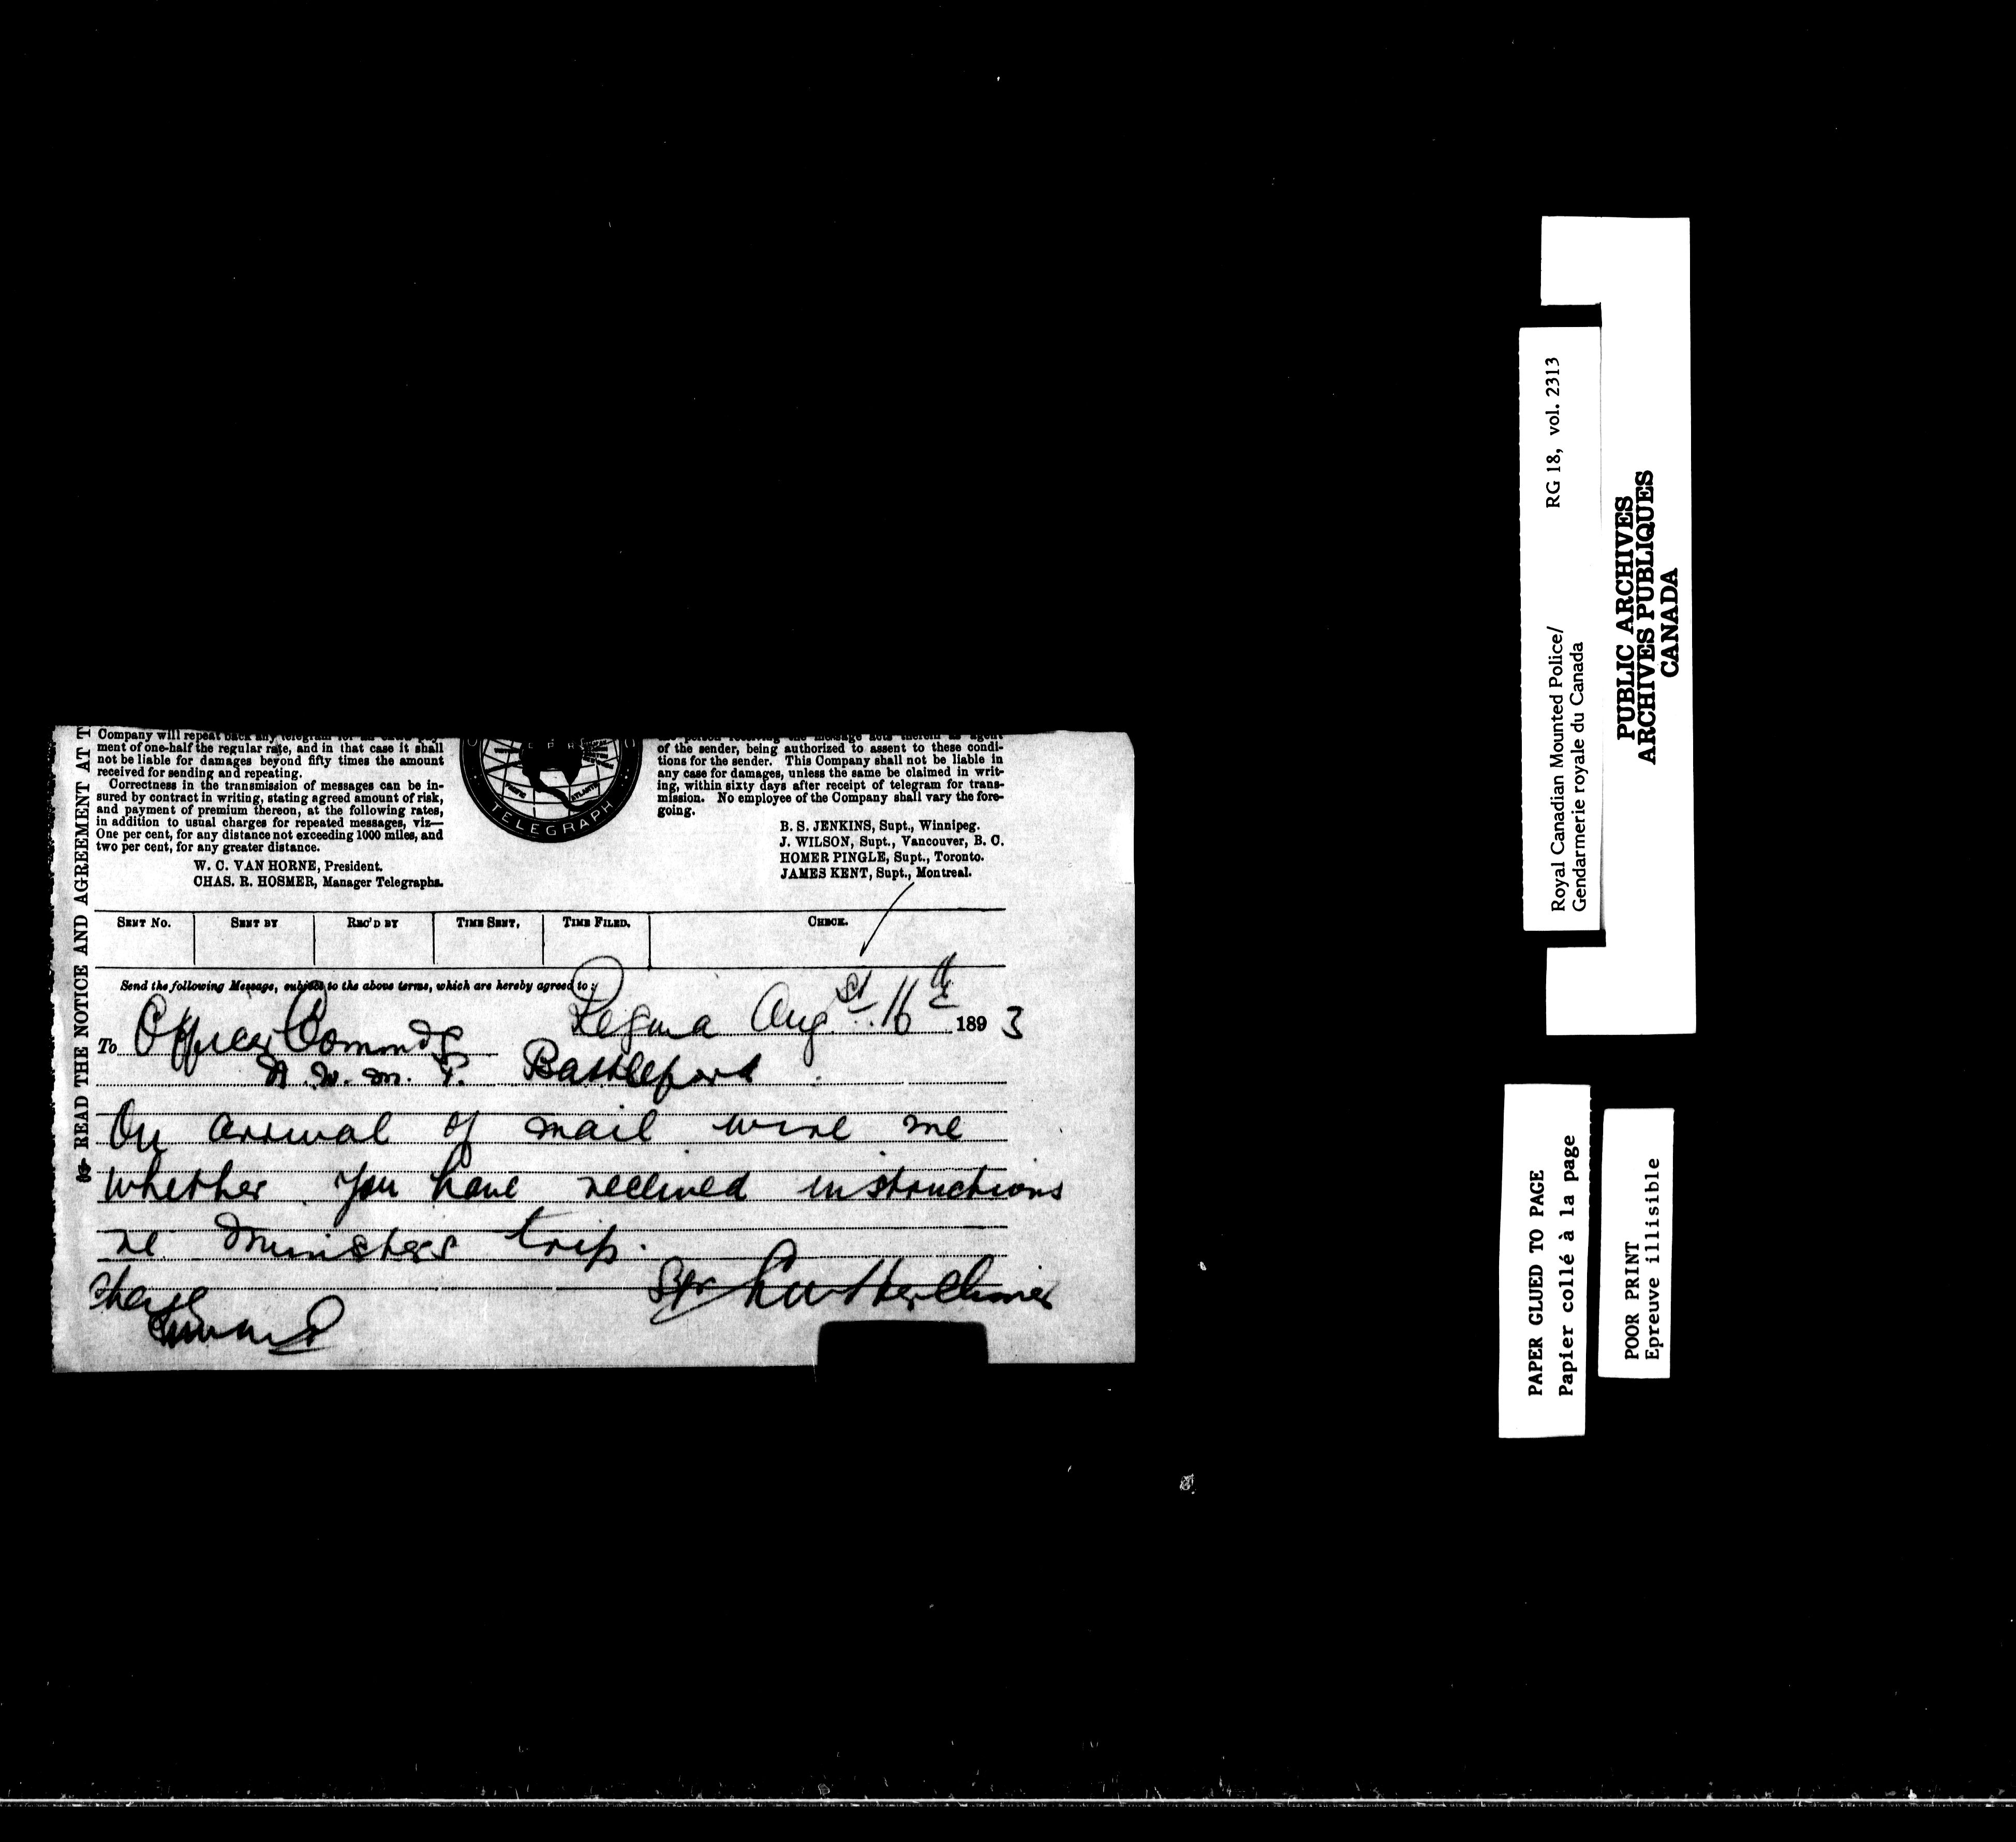 READ THE NOTICE AND AGREEMENT AT T
Company will repeat back any telegram for an
ment of one-half the regular rate, and in that case it shall
not be liable for damages beyond fifty times the amount
received for sending and repeating.
Correctness in the transmission of messages can be in-
sured by contract in writing, stating agreed amount of risk,
and payment of premium thereon, at the following rates,
in addition to usual charges for repeated messages, viz—
One per cent, for any distance not exceeding 1000 miles, and
two per cent, for any greater distance.
W. C. VAN HORNE, President.
CHAS. R. HOSMER, Manager Telegraphs.
TELEGRAPH
ATLANTIC
of the sender, being authorized to assent to these condi-
tions for the sender. This Company shall not be liable in
any case for damages, unless the same be claimed in writ-
ing, within sixty days after receipt of telegram for trans-
mission. No employee of the Company shall vary the fore-
going.
B. S. JENKINS, Supt., Winnipeg.
J. WILSON, Supt., Vancouver, B. C.
HOMER PINGLE, Supt., Toronto.
JAMES KENT, Supt., Montreal.
SENT NO. SENT BY REC'D BY TIME SENT, TIME FILED. CHECK.
Send the following Message, subject to the above terms, which are hereby agreed to:
Regina Augst 16th 1893
To Officer Commdg
N. W. M. P. Battleford
On arrival of mail wire me
whether you have received instructions
re Ministers trip.
Sgr L W Herchmer
Charge
Royal Canadian Mounted Police/ RG 18, vol. 2313
Gendarmerie royale du Canada
PUBLIC ARCHIVES
ARCHIVES PUBLIQUES
CANADA
PAPER GLUED TO PAGE
Papier collé à la page
POOR PRINT
Epreuve illisible